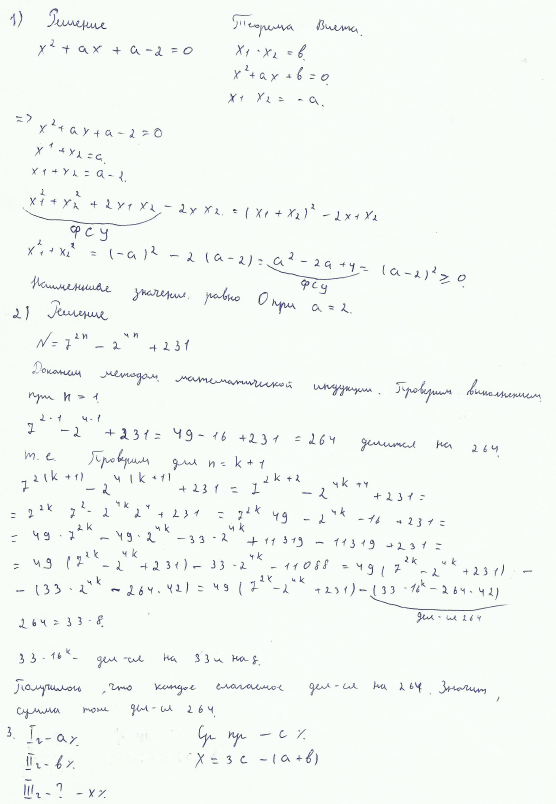 1) Решение
x² + ax + a - 2 = 0
Теорема Виета.
x₁ · x₂ = в.
x² + ax + в = 0.
x₁ x₂ = - a.
=> x² + ax + a - 2 = 0
x₁ + x₂ = a.
x₁ + x₂ = a - 2.
x₁² + x₂² + 2x₁x₂ - 2x x₂ = (x₁ + x₂)² - 2x₁x₂
ФСУ
x₁² + x₂² = (-a)² - 2(a-2) = a² - 2a + 4 = (a-2)² ≥ 0.
ФСУ
Наименьшее значение равно 0 при a = 2.
2) Решение
N = 7²ⁿ - 2⁴ⁿ + 231
Докажем методом математической индукции. Проверим выполнением
при n = 1
7²·¹ - 2⁴·¹ + 231 = 49 - 16 + 231 = 264 делится на 264.
т.е. Проверим для n = k + 1
7²⁽ᵏ⁺¹⁾ - 2⁴⁽ᵏ⁺¹⁾ + 231 = 7²ᵏ⁺² - 2⁴ᵏ⁺⁴ + 231 =
= 7²ᵏ 7² - 2⁴ᵏ 2⁴ + 231 = 7²ᵏ 49 - 2⁴ᵏ - 16 + 231 =
= 49 · 7²ᵏ - 49 · 2⁴ᵏ - 33 · 2⁴ᵏ + 11319 - 11319 + 231 =
= 49 (7²ᵏ - 2⁴ᵏ + 231) - 33 · 2⁴ᵏ - 11088 = 49 (7²ᵏ - 2⁴ᵏ + 231) -
- (33 · 2⁴ᵏ - 264 · 42) = 49 (7²ᵏ - 2⁴ᵏ + 231) - (33 · 16ᵏ - 264 · 42)
дел-ся 264
264 = 33 · 8.
33 · 16ᵏ - дел-ся на 33 и на 8.
Получилось, что каждое слагаемое дел-ся на 264. Значит,
сумма тоже дел-ся 264.
3. I г - a %.
II г - в %.
III г - ? - x %.
Ср пр - с %.
X = 3c - (a + в)